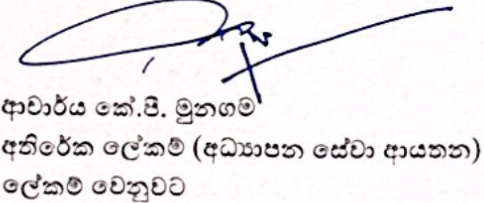 ආචාර්ය කේ.පී. මුනගම
අතිරේක ලේකම් (අධ්‍යාපන සේවා ආයතන)
ලේකම් වෙනුවට